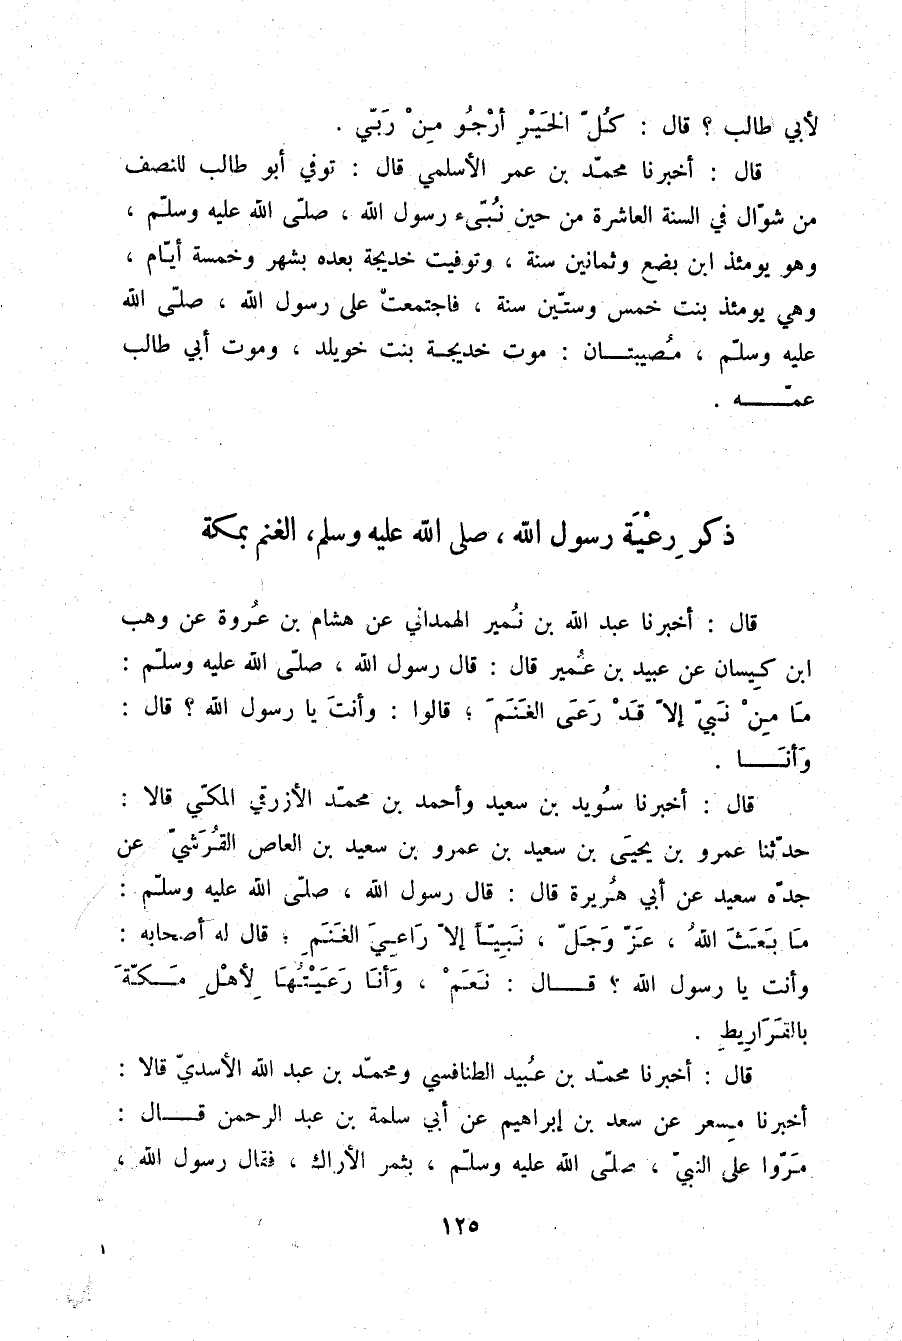 لأبي طالب ؟ قال : كُلّ الخَيْرِ أرْجُو مِنْ رَبّي .
قال : أخبرنا محمّد بن عمر الأسلمي قال : توفي أبو طالب للنصف
من شوّال في السنة العاشرة من حين نُبّىء رسول الله ، صلّى الله عليه وسلّم ،
وهو يومئذ ابن بضع وثمانين سنة ، وتوفيت خديجة بعده بشهر وخمسة أيّام ،
وهي يومئذ بنت خمس وستّين سنة ، فاجتمعتْ على رسول الله ، صلّى الله
عليه وسلّم ، مُصيبتـــان : موت خديجـة بنت خويلد ، وموت أبي طالب
عمّـــــه .
ذكر رِعْيَة رسول الله ، صلى الله عليه وسلم، الغنم بمكة
قال : أخبرنا عبد الله بن نُمير الهمداني عن هشام بن عُروة عن وهب
ابن كَيسان عن عبيد بن عُمير قال : قال رسول الله ، صلّى الله عليه وسلّم :
مَا مِنْ نَبيّ إلاّ قَدْ رَعَى الغَنَمَ ؛ قالوا : وأنتَ يا رسول الله ؟ قال :
وَأنَـــــا .
قال : أخبرنا سُويد بن سعيد وأحمد بن محمّد الأزرقي المكّي قالا :
حدّثنا عمرو بن يحيَى بن سعيد بن عمرو بن سعيد بن العاص القُرَشيّ عن
جدّه سعيد عن أبي هُريرة قال : قال رسول الله ، صلّى الله عليه وسلّم :
مَا بَعَثَ اللهُ ، عَزّ وَجَلّ ، نَبِيّاً إلاّ رَاعِيَ الغَنَمِ ؛ قال له أصحابه :
وأنت يا رسول الله ؟ قـــال : نَعَمْ ، وَأنَا رَعَيْتُهَا لِأهْلِ مَـكّةَ
بالقَرَارِيطِ .
قال : أخبرنا محمّد بن عُبيد الطنافسي ومحمّد بن عبد الله الأسديّ قالا :
أخبرنا مِسعر عن سعد بن إبراهيم عن أبي سلمة بن عبد الرحمن قـــال :
مَرّوا على النبيّ ، صلّى الله عليه وسلّم ، بثمر الأراك ، فقال رسول الله ،
١٢٥
١